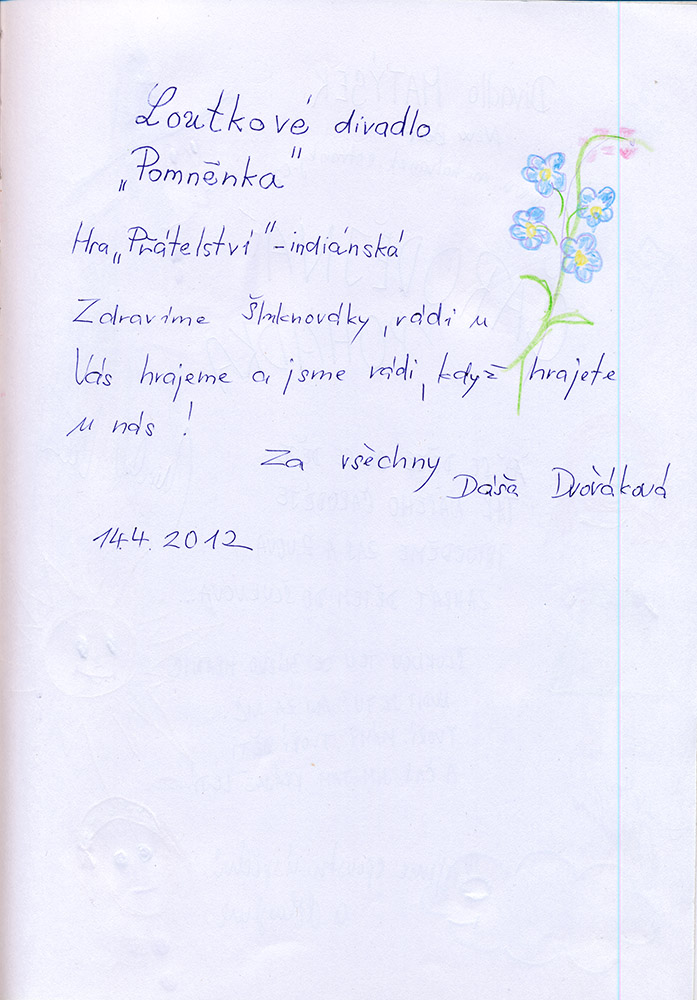 Loutkové divadlo
„Pomněnka"
Hra „Přátelství" - indiánská
Zdravíme Šluknováky, rádi u
Vás hrajeme a jsme rádi, když hrajete
u nás!
Za všechny Dáša Dvořáková
14.4. 2012